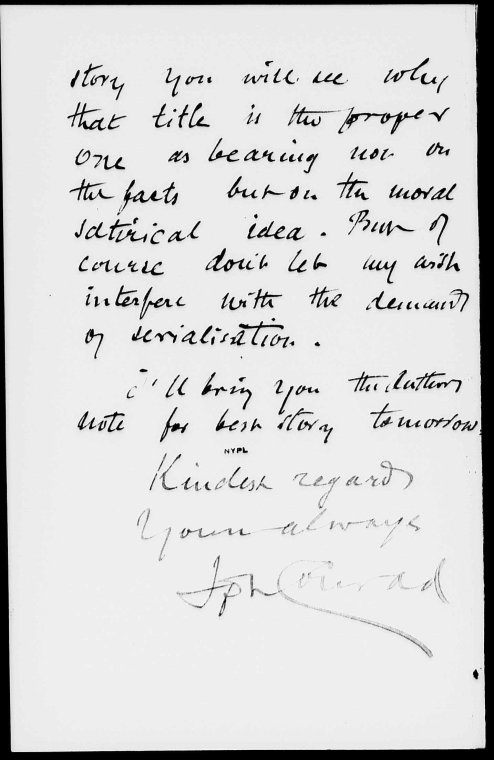 story you will see why
that title is the proper
one as bearing not on
the facts but on the moral
satirical idea. But of
course don't let my wish
interfere with the demands
of serialisation.
I'll bring you the Authors
note for best story tomorrow.
NYPL
Kindest regards
Yours always
Jph Conrad